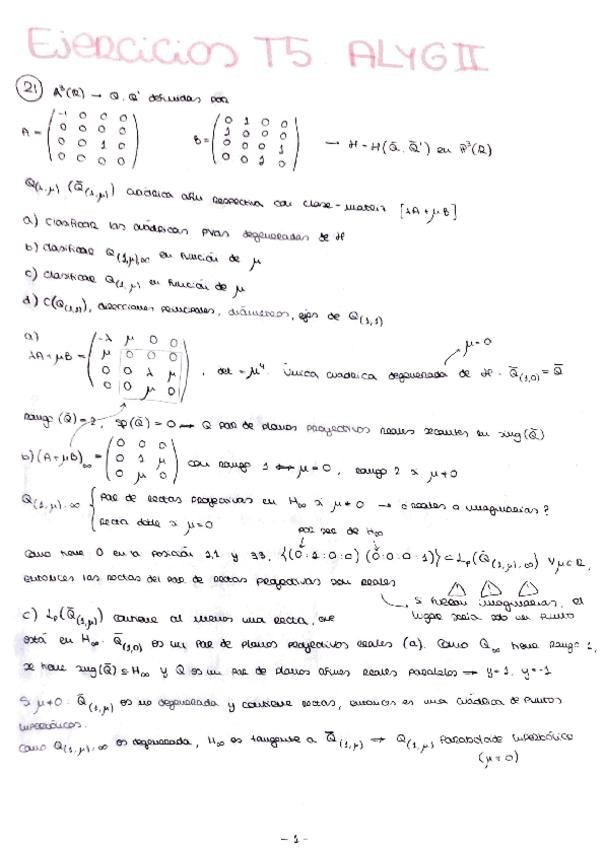 Ejercicios T5 ALYGII
21 A³(R) → Q, Q' definidas por
A = ( -1 0 0 0 / 0 0 0 0 / 0 0 1 0 / 0 0 0 0 ) B = ( 0 1 0 0 / 1 0 0 0 / 0 0 0 1 / 0 0 1 0 ) → H = H(Q̄, Q̄') en P³(R)
Q(λ,μ) (Q̄(λ,μ)) cuádrica afín respectiva con clase-matriz [λA+μB]
a) Clasificar las cuádricas degeneradas de H
b) Clasificar Q(1,μ)∞ en función de μ
c) Clasificar Q(1,μ) en función de μ
d) C(Q(1,1)), direcciones principales, diámetros, ejes de Q(1,1)
a)
λA+μB = ( -λ μ 0 0 / μ 0 0 0 / 0 0 λ μ / 0 0 μ 0 ), det = μ⁴. Única cuádrica degenerada de H: Q̄(1,0) = Q̄
μ=0
rango (Q̄) = 2, sp(Q̄) = 0 → Q par de planos proyectivos reales secantes en sing(Q̄)
b) (A+μB)∞ = ( 0 0 0 / 0 1 μ / 0 μ 0 ) con rango 1 ⟷ μ=0, rango 2 si μ≠0
Q(1,μ),∞ { par de rectas proyectivas en H∞ si μ≠0 → ¿reales o imaginarias?
recta doble si μ=0
por ser de H∞
Como tiene 0 en la posición 1,1 y 3,3, {(0:1:0:0) (0:0:0:1)} ⊂ Lp(Q̄(1,μ),∞) ∀μ∈R,
entonces las rectas del par de rectas proyectivas son reales
Si fueran imaginarias, el
lugar sería solo un punto
c) Lp(Q̄(1,μ)) contiene al menos una recta, que
está en H∞. Q̄(1,0) es un par de planos proyectivos reales (a). Como Q∞ tiene rango 1,
se tiene sing(Q̄) ⊆ H∞ y Q es un par de planos afines reales paralelos → y=1, y=-1
Si μ≠0: Q̄(1,μ) es no degenerada y contiene rectas, entonces es una cuádrica de puntos
hiperbólicos.
Como Q(1,μ),∞ es degenerada, H∞ es tangente a Q̄(1,μ) → Q(1,μ) paraboloide hiperbólico
(μ=0)
- 1 -